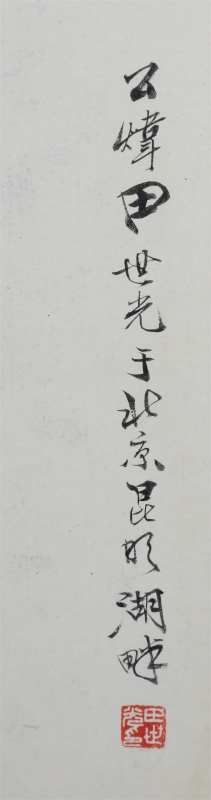 公煒田世光于北京昆明湖畔
田世光印